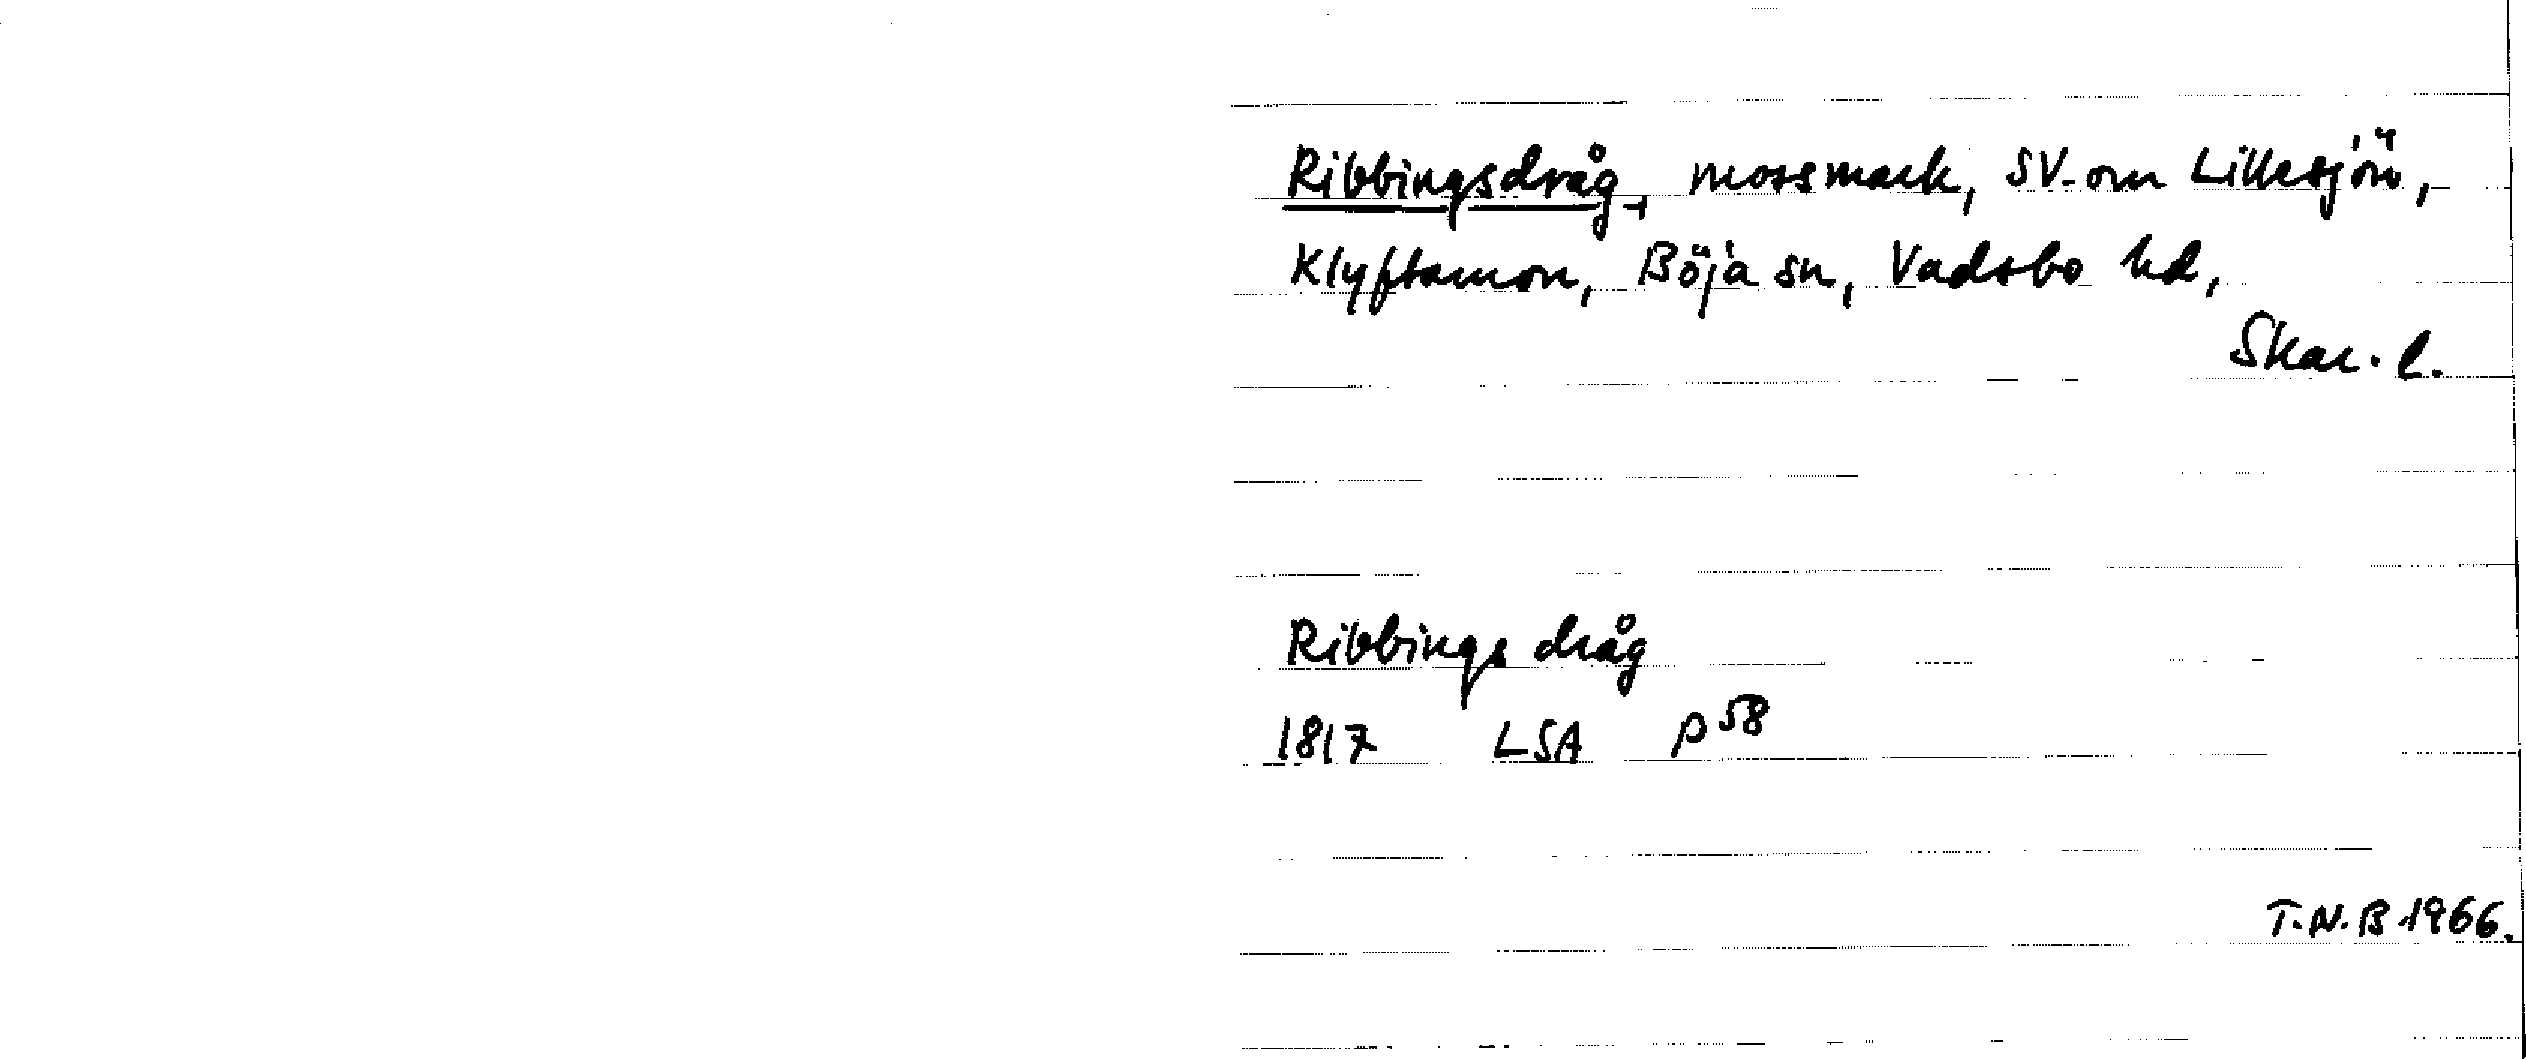 Ribbingsdråg, mossmark, SV. om Lillesjön,
Klyftamon, Böja sn, Vadsbo hd,
Skar. l.
Ribbings dråg
1817 LSA P 58
T.N.B 1966.